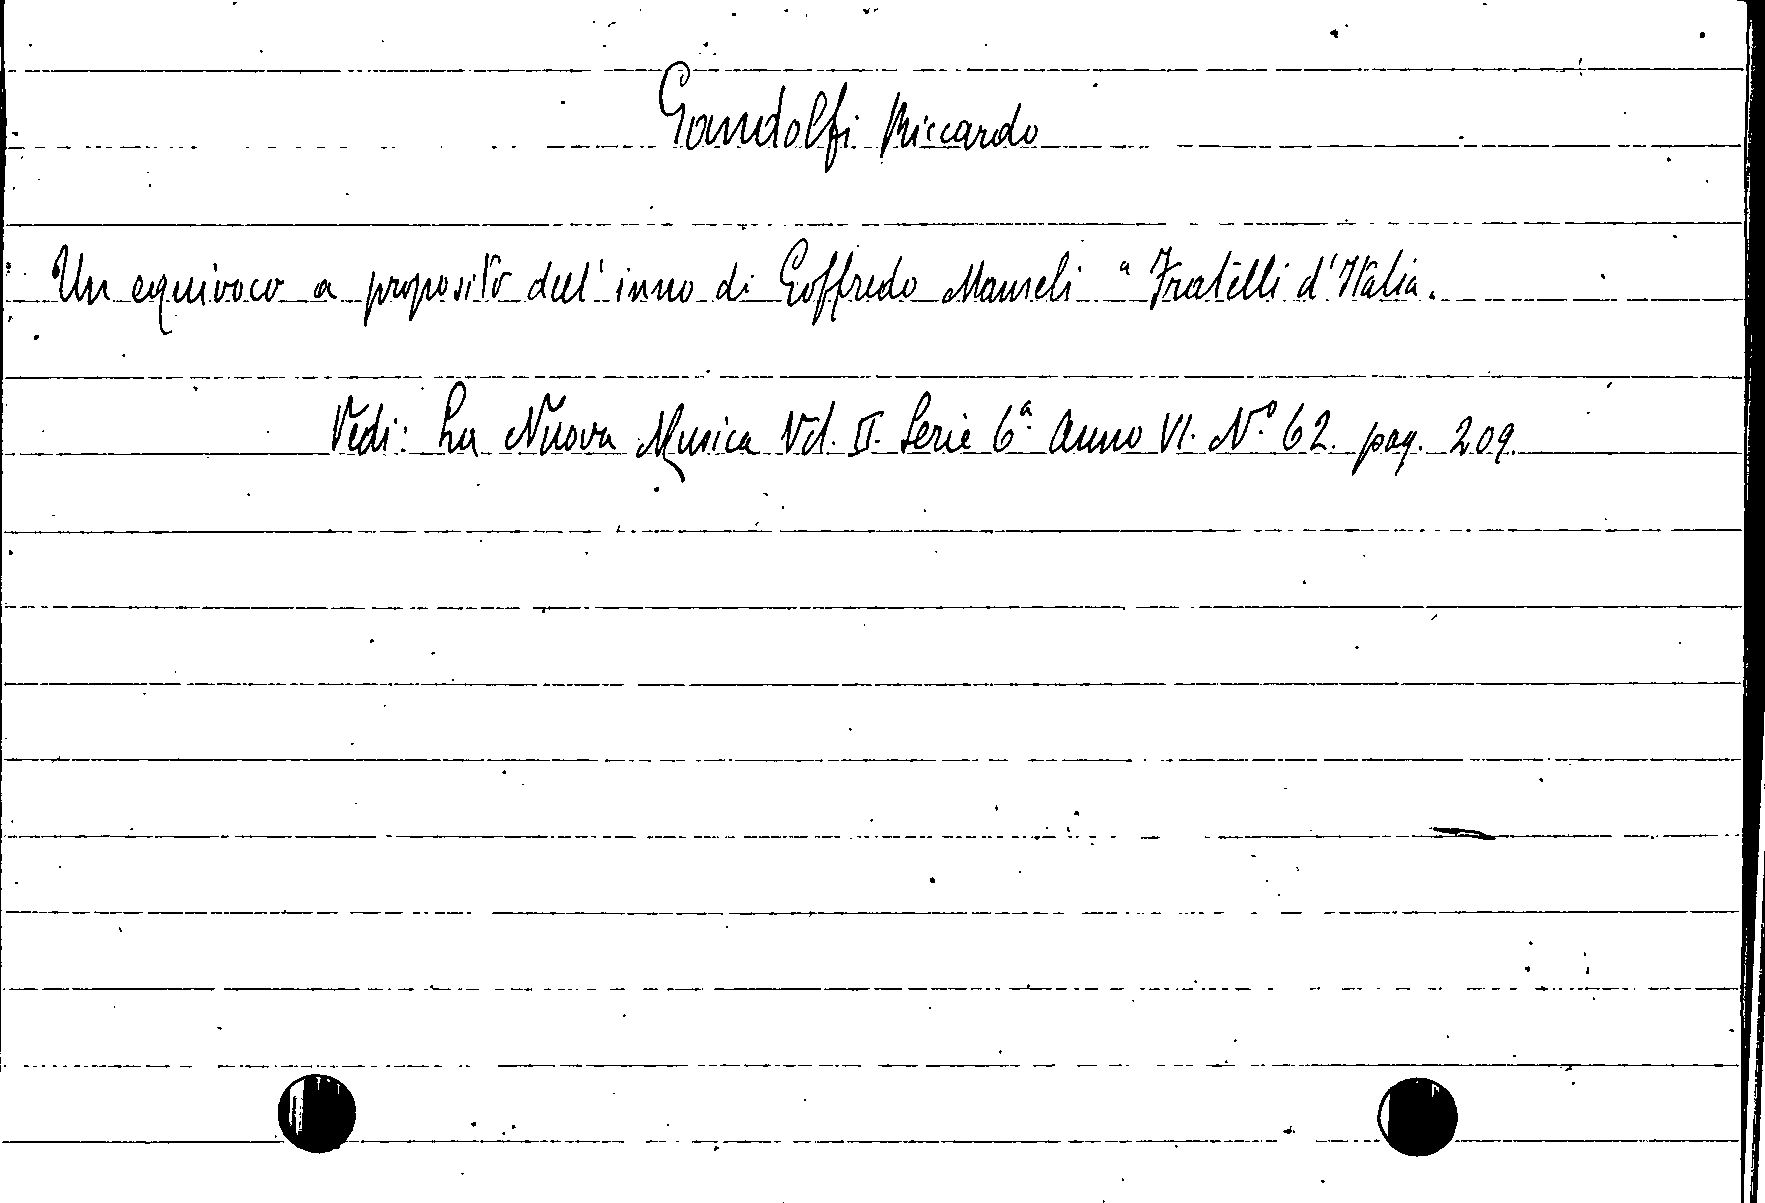 Gandolfi Riccardo
Un equivoco a proposito dell'inno di Goffredo Mameli "Fratelli d'Italia.
Vedi: La Nuova Musica Vol. II. Serie 6ª Anno VI. Nº 62. pag. 209.